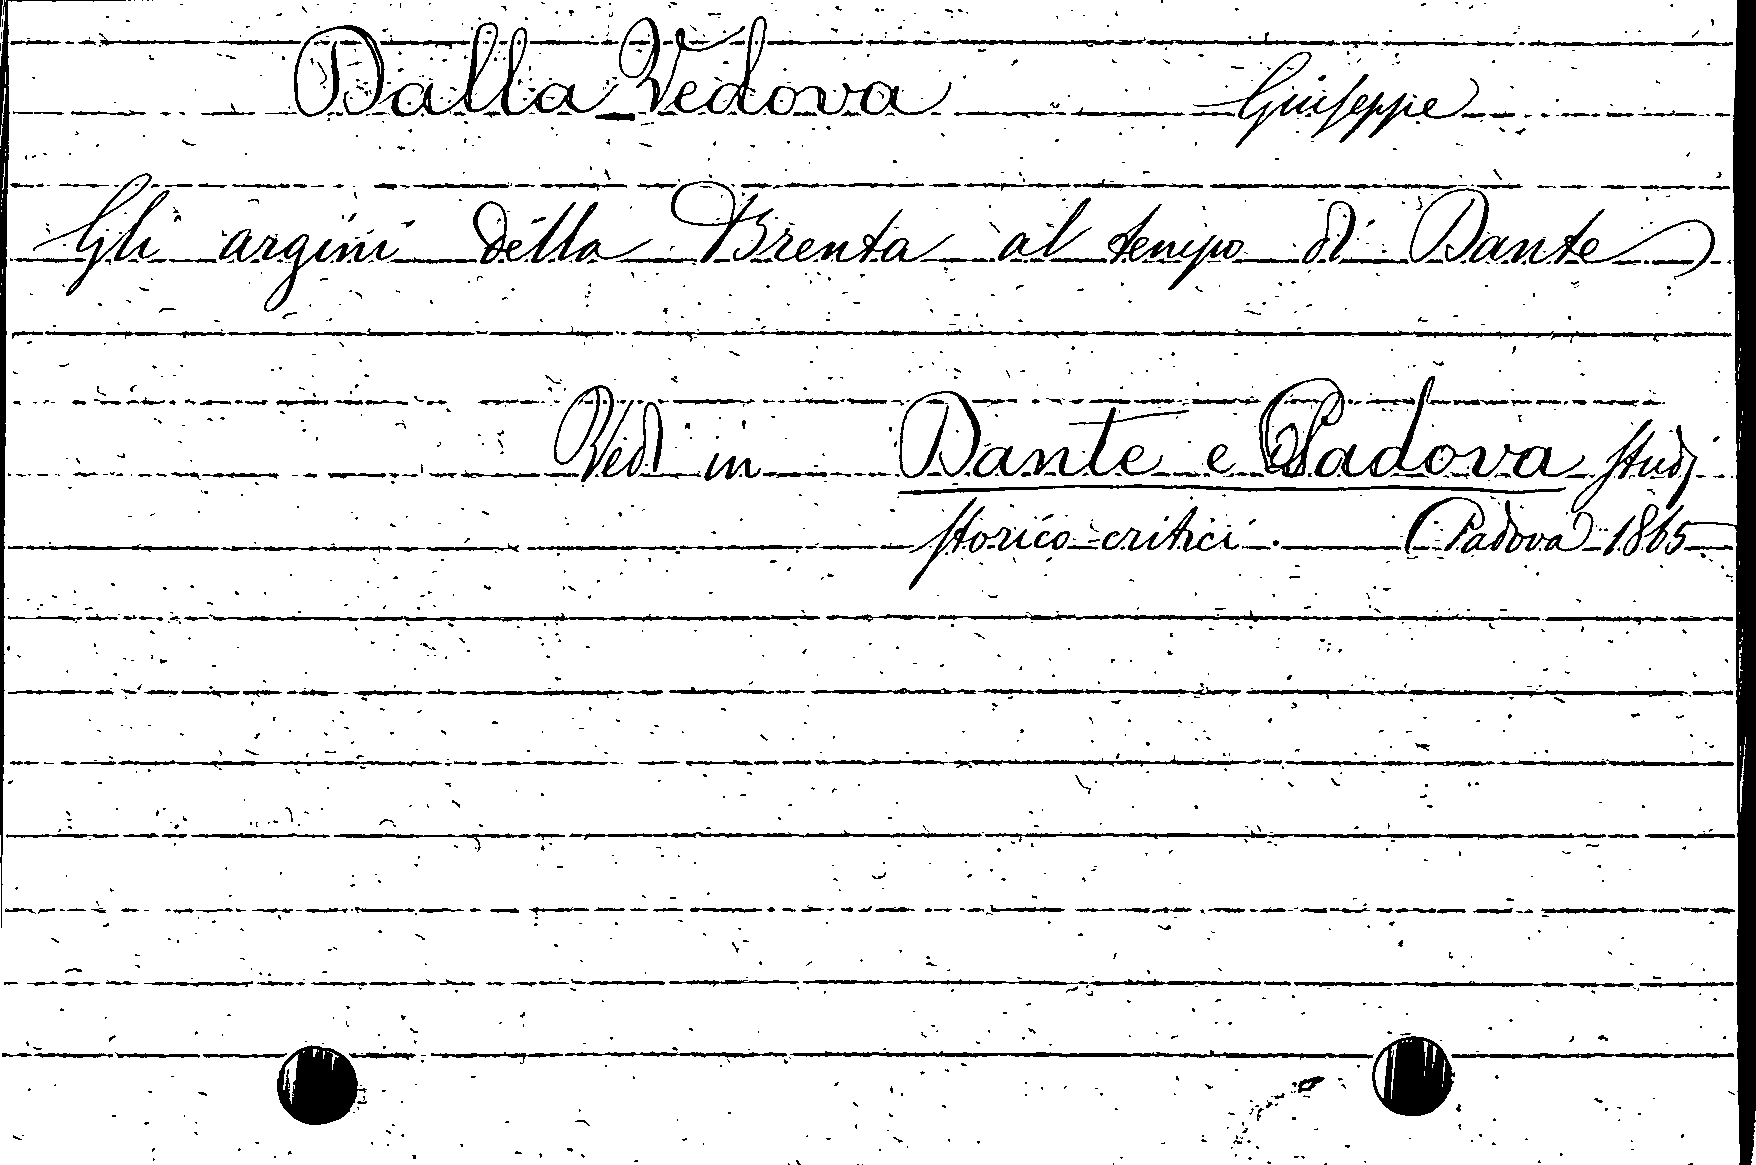 Dalla Vedova Giuseppe
Gli argini della Brenta al tempo di Dante
Vedi in Dante e Padova studj
storico-critici. Padova 1865